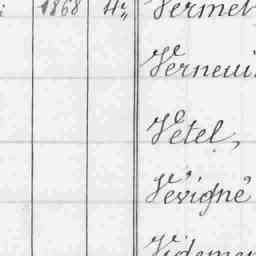 1868 4 Vermet
Verneuil
Vétel,
Vévigné
Videmer